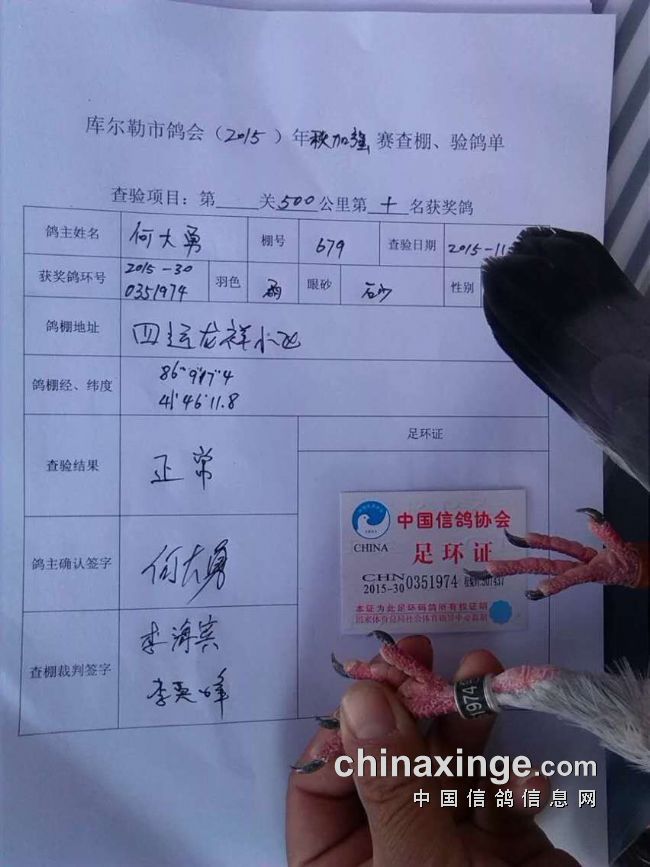 库尔勒市鸽会(2015)年秋加强赛查棚、验鸽单
查验项目:第 关500公里第十名获奖鸽
鸽主姓名 何大勇 棚号 679 查验日期 2015-11-
获奖鸽环号 2015-30 0351974 羽色 雨 眼砂 石少 性别
鸽棚地址 四运龙祥小区
鸽棚经、纬度 86°9'17"4
41°46'11.8
足环证
查验结果 正常
鸽主确认签字 何大勇
查棚裁判签字 李海宾
李英峰
中国信鸽协会
CHINA
足环证
CHN
2015-30 0351974
本证为此足环码鸽所有权证明
国家体育总局社会体育指导中心监制
1974
chinaxinge.com
中国信鸽信息网